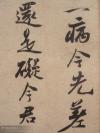 一病今先差
還是礙今君